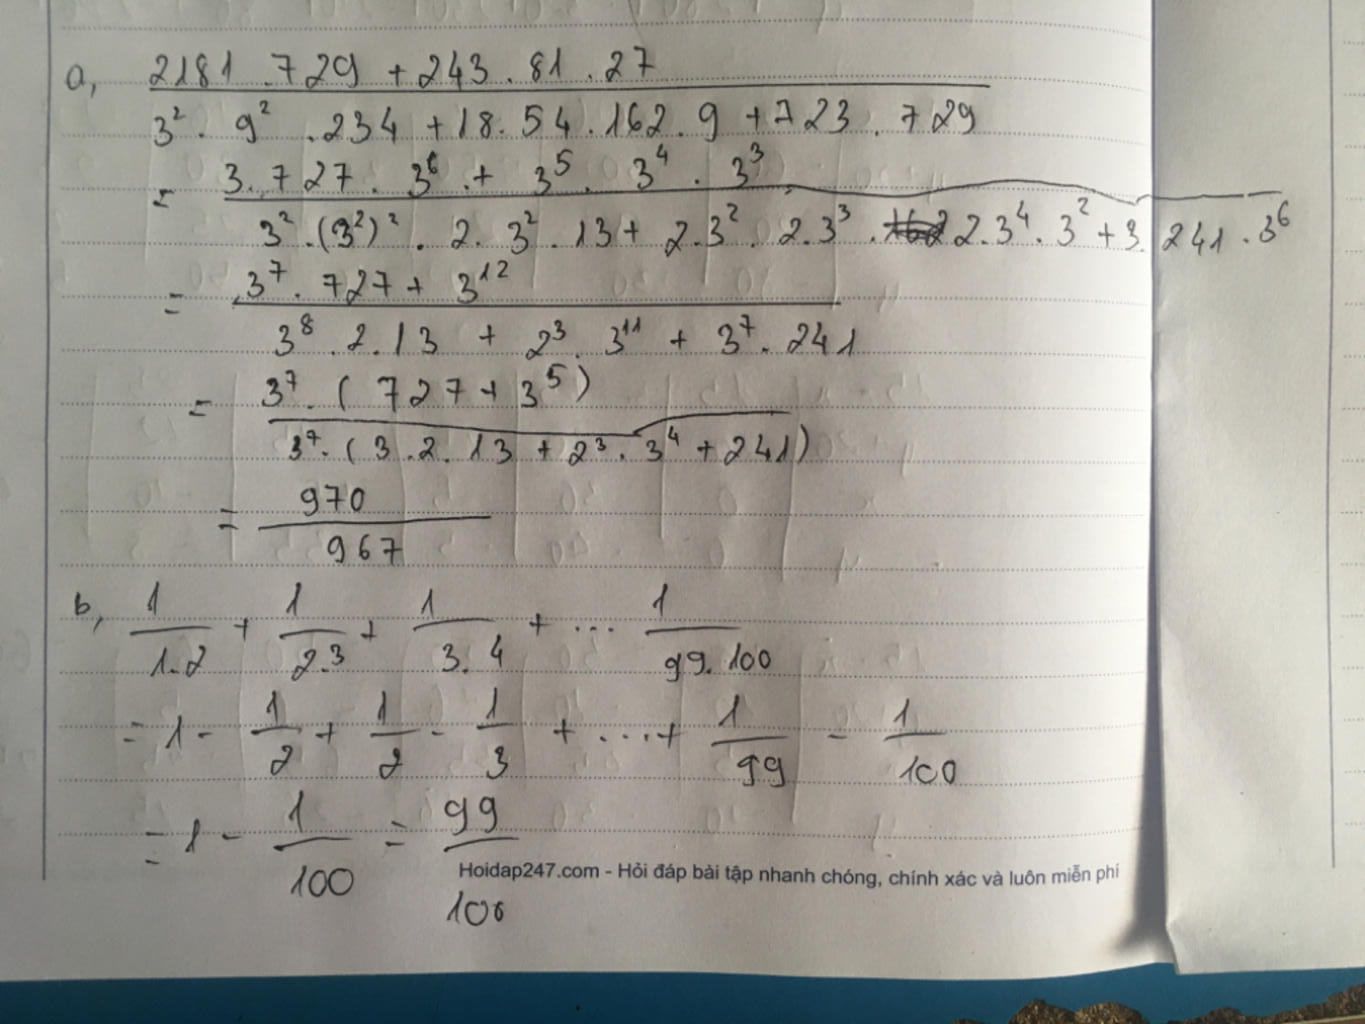 a, 2181 . 729 + 243 . 81 . 27
3² . 9² . 234 + 18 . 54 . 162 . 9 + 723 . 729
= 3 . 727 . 3⁶ . + 3⁵ . 3⁴ . 3³
3² . (3²)² . 2 . 3² . 13 + 2 . 3² . 2 . 3³ . 2 . 3⁴ . 3² + 3 . 241 . 3⁶
= 3⁷ . 727 + 3¹²
3⁸ . 2 . 13 + 2³ . 3¹¹ + 3⁷ . 241
= 3⁷ . ( 727 + 3⁵ )
3⁷ . ( 3 . 2 . 13 + 2³ . 3⁴ + 241 )
= 970
967
b, 1/1.2 + 1/2.3 + 1/3.4 + ... 1/99.100
= 1 - 1/2 + 1/2 - 1/3 + ... + 1/99 - 1/100
= 1 - 1/100 = 99/100
Hoidap247.com - Hỏi đáp bài tập nhanh chóng, chính xác và luôn miễn phí